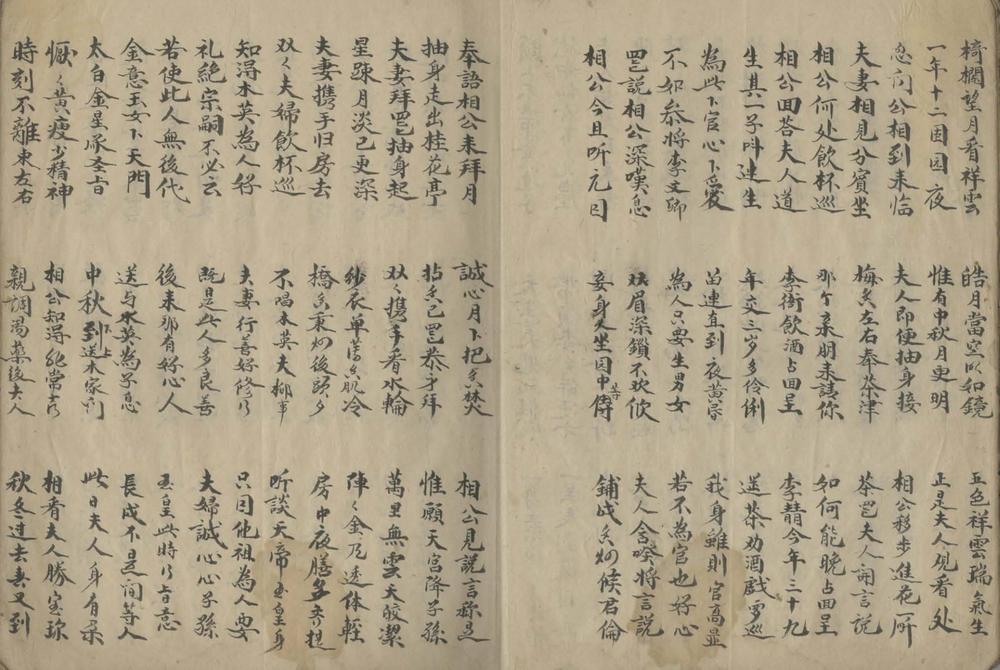 椅欄望月看祥雲 皓月當空似如鏡 五色祥雲瑞氣生
一年十二团园夜 惟有中秋月更明 正是夫人观看处
忽闻公相到来临 夫人即便抽身接 相公移步進花所
夫妻相見分賓坐 梅香左右奉茶津 茶罢夫人開言説
相公何处飲杯巡 那个亲朋来請你 如何能晚占回呈
相公回答夫人道 李衙飲酒占回呈 李今年三十九
生其一子呌連生 年交三岁多伶俐 送茶劝酒戯巡
為此下官心下爱 苗連直到夜黄昏 我身雖則官高显
不如叅將李文卿 為人只要生男女 若不為官也好心
罢説相公深嘆息 双眉深鎖不欢忻 夫人含將言説
相公今且听元因 妾身又坐园中等 鋪成香炉候君倫
奉語相公来拜月 誠心月下把香焚 相公見説言称是
抽身走出桂花亭 拈香已罢恭才拜 惟願天宮降子孫
夫妻拜罢抽身起 双々携手看水輪 萬里無雲天皎潔
星踈月淡已更深 紗衣单薄香肌冷 陣々金乃透体軽
夫妻携手归房去 香秉灿後頭夕 房中夜膳多齐提
双々夫婦飲杯巡 不唱木英夫柳事 听談天帝玉皇身
知得木英為人好 夫妻行善好修行 只因他祖為人要
礼絶宗嗣不必云 既是此人多良善 夫婦誠心心子孫
若使此人無後代 後来那有好心人 玉皇此時行旨意
金意玉女下天門 送与水英為子息 長成不是间等人
太白金星承圣旨 中秋到送水家门 此日夫人身有孕
懨々黄瘦少精神 相公知得非常喜 相看夫人勝宝珎
時刻不離東左右 親調湯药後夫人 秋冬过去春又到